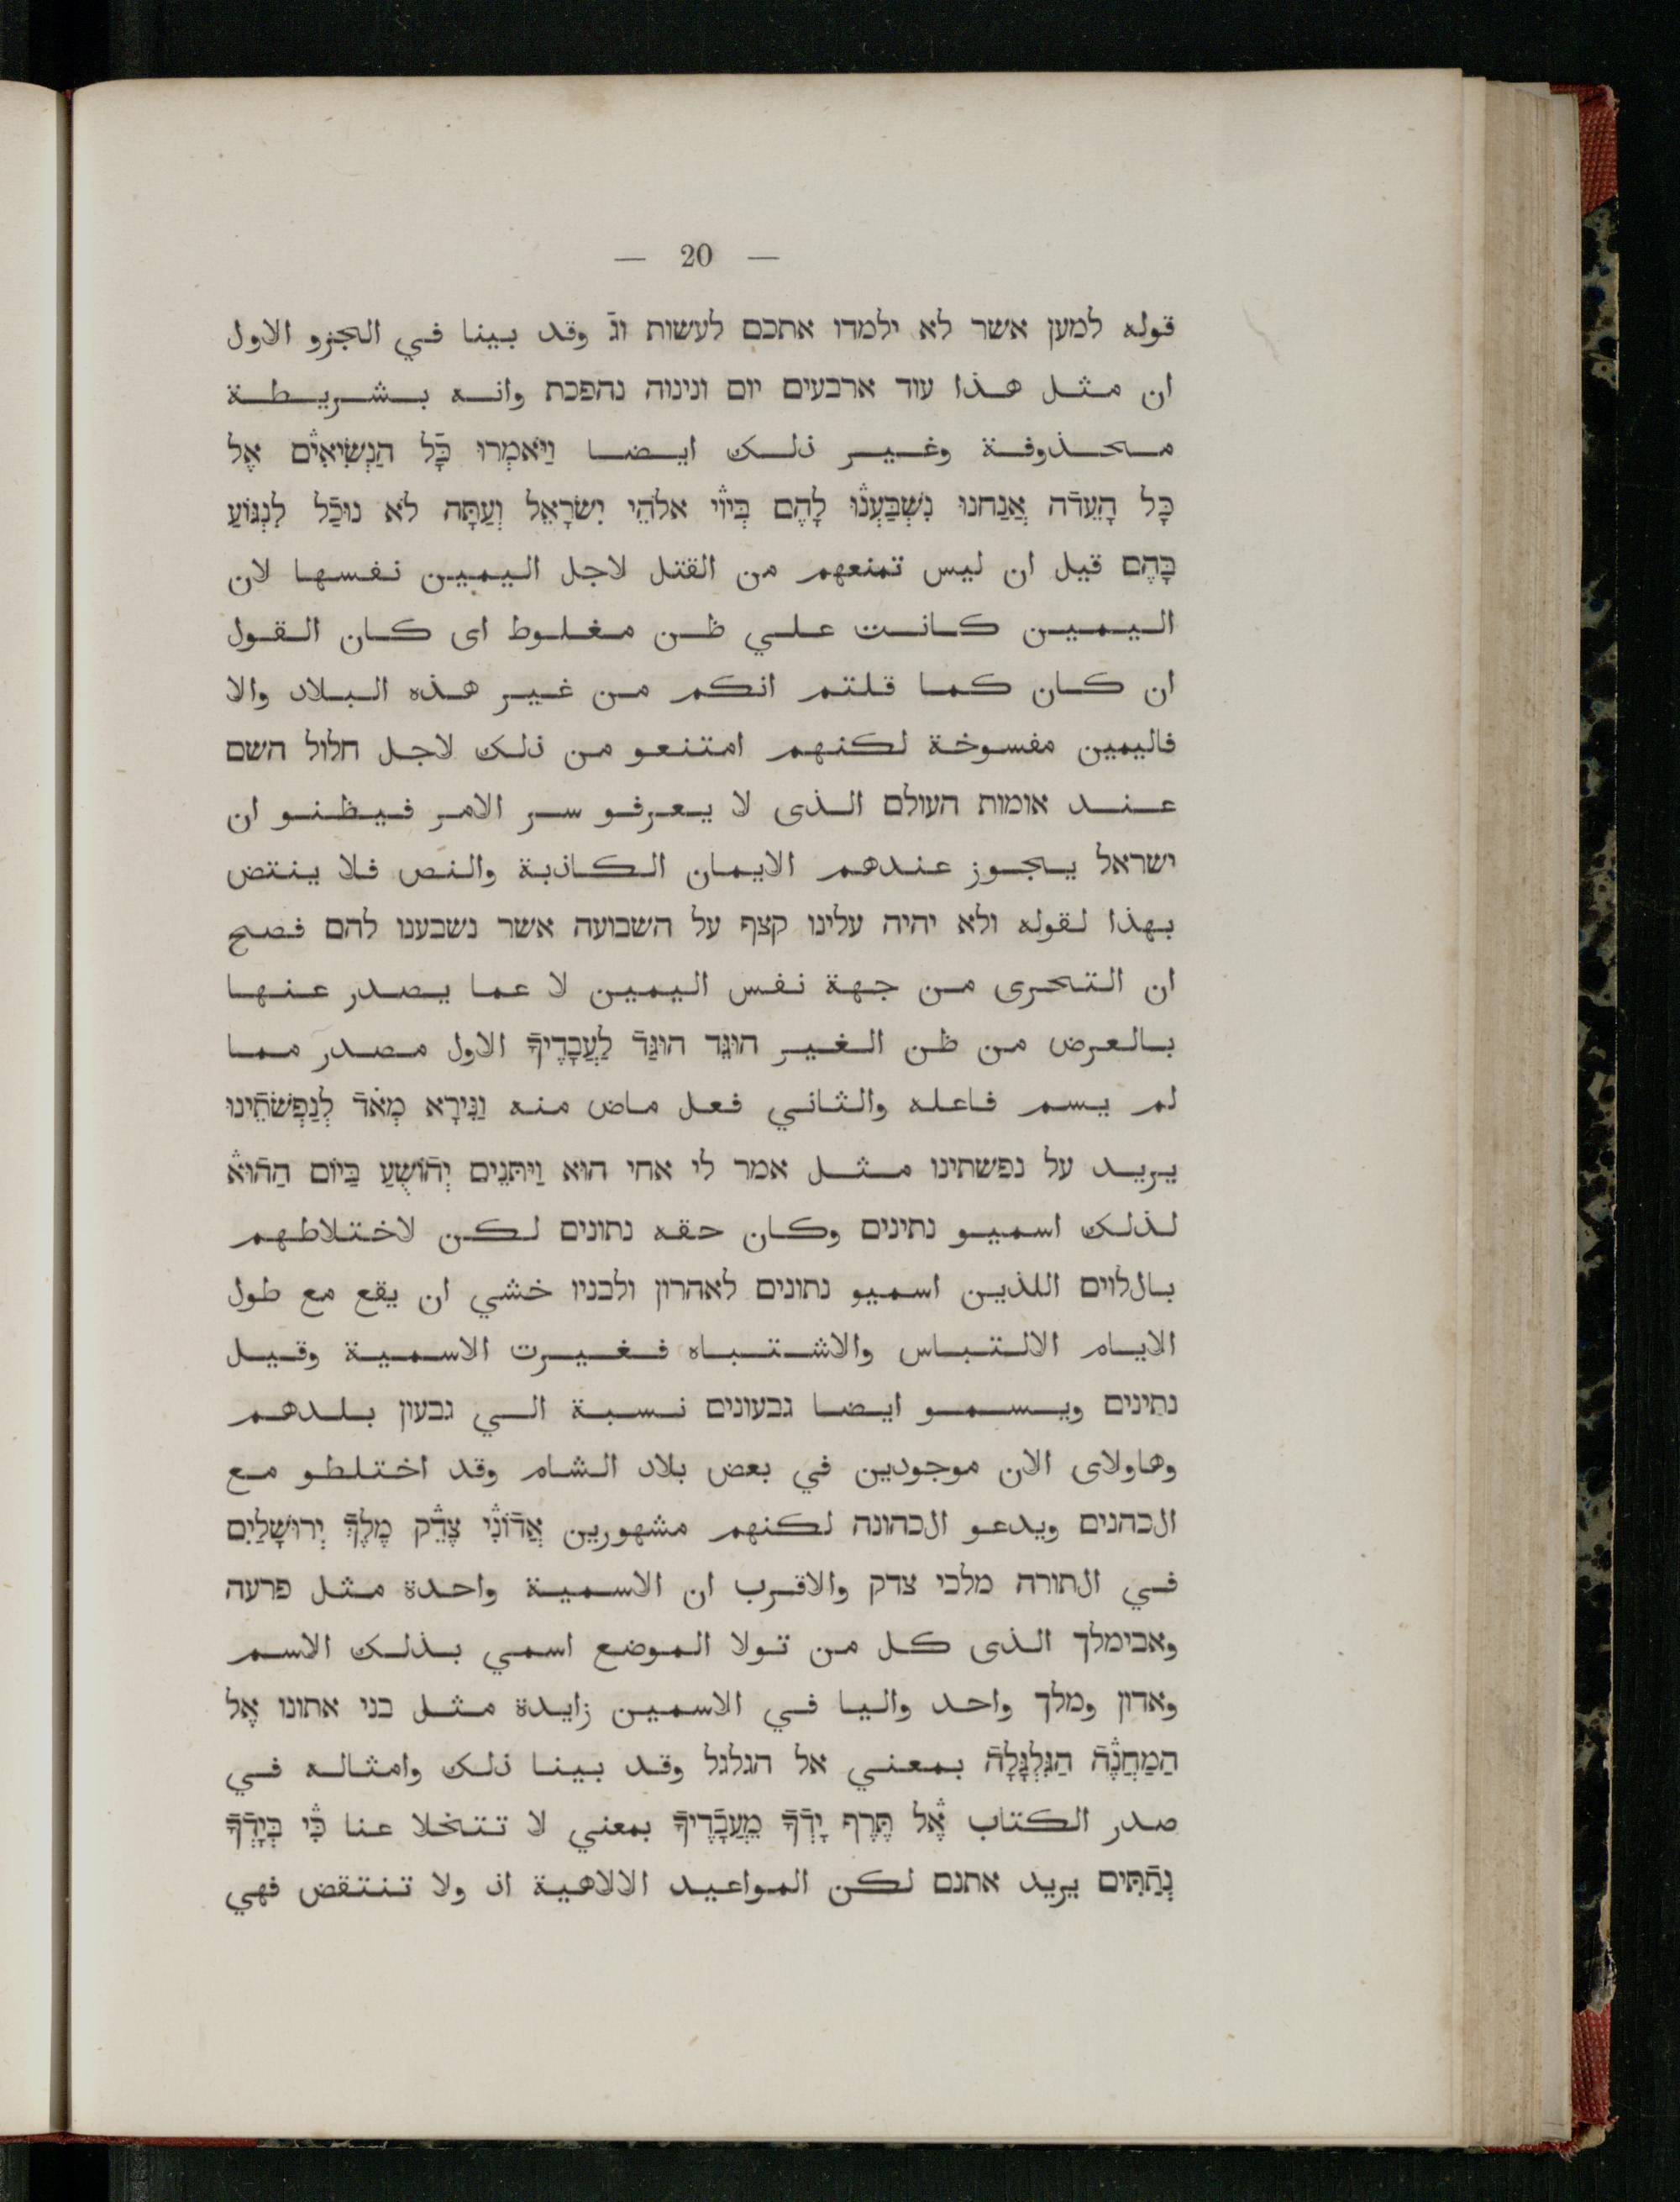 — 20 —
قوله למען אשר לא ילמדו אתכם לעשות וג̄ وقد بينا في الجزو الاول
ان مثل هذا עוד ארבעים יום ונינוה נהפכת وانه بشريطة
محذوفة وغير ذلك ايضا וַיֹּאמְרוּ כָּל הַנְּשִׂיאִים אֶל
כָּל הָעֵדָה אֲנַחנוּ נִשְׁבַּעְנוּ לָהֶם בְּיוֹי אלהֵי יִשׂרָאֵל וְעַתָּה לֹא נוּכַל לִנְגּוֹעַ
בָּהֶם قيل ان ليس تمنعهم من القتل لاجل اليمين نفسها لان
اليمين كانت علي ظن مغلوط اى كان القول
ان كان كما قلتم انكم من غير هذه البلاد والا
فاليمين مفسوخة لكنهم امتنعو من ذلك لاجل חלול השם
عند אומות העולם الذى لا يعرفو سر الامر فيظنو ان
ישראל يجوز عندهم الايمان الكاذبة والنص فلا ينتض
بهذا لقوله ולא יהיה עלינו קצף על השבועה אשר נשבענו להם فصح
ان التحرى من جهة نفس اليمين لا عما يصدر عنها
بالعرض من ظن الغير הוּגֵּד הוּגַּד לַעֲבָדֶיךָ الاول مصدر مما
لم يسم فاعله والثاني فعل ماض منه וַנִּירָא מְאֹד לְנַפְשֹׁתֵינוּ
يريد על נפשתינו مثل אמר לי אחי הוא וַיִּתּנֵים יְהוֹשֻׁעַ בַּיּוֹם הַהוּא
لذلك اسميو נתינים وكان حقه נתונים لكن لاختلاطهم
بالלוים اللذين اسميو נתונים לאהרון ולבניו خشي ان يقع مع طول
الايام الالتباس والاشتباه فغيرت الاسمية وقيل
נתינים ويسمو ايضا גבעונים نسبة الي גבעון بلدهم
وهاولاى الان موجودين في بعض بلاد الشام وقد اختلطو مع
الכהנים ويدعو الכהונה لكنهم مشهورين אֲדוֹנִי צֶדֵק מֶלֶךְ יְרוּשָׁלַיִם
في الתורה מלכי צדק والاقرب ان الاسمية واحدة مثل פרעה
وאבימלך الذى كل من تولا الموضع اسمي بذلك الاسم
وאדון وמלך واحد واليا في الاسمين زايدة مثل בני אתונו אֶל
הַמַּחֲנֶה הַגִּלְגָּלָה بمعني אל הגלגל وقد بينا ذلك وامثاله في
صدر الكتاب אֶל תֶּרֶף יָדְךָ מֵעֲבָדֶיךָ بمعني لا تتخلا عنا כִּי בְּיָדְךָ
נְתַתִּים يريد אתנם لكن المواعيد الالاهية اذ ولا تنتقض فهي